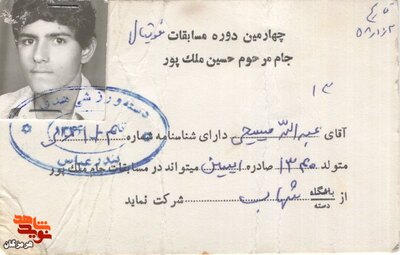 چهارمین دوره مسابقات فوتبال
جام مرحوم حسین ملک پور
۱۳
آقای عبدالله مسیحی دارای شناسنامه شماره
متولد ۱۳۴۰ صادره میتواند در مسابقات جام ملک پور
از باشگاه
دسته شهاب شرکت نماید
دسته ورزشی
بندرعباس
شاهد
نوید
هرمزگان